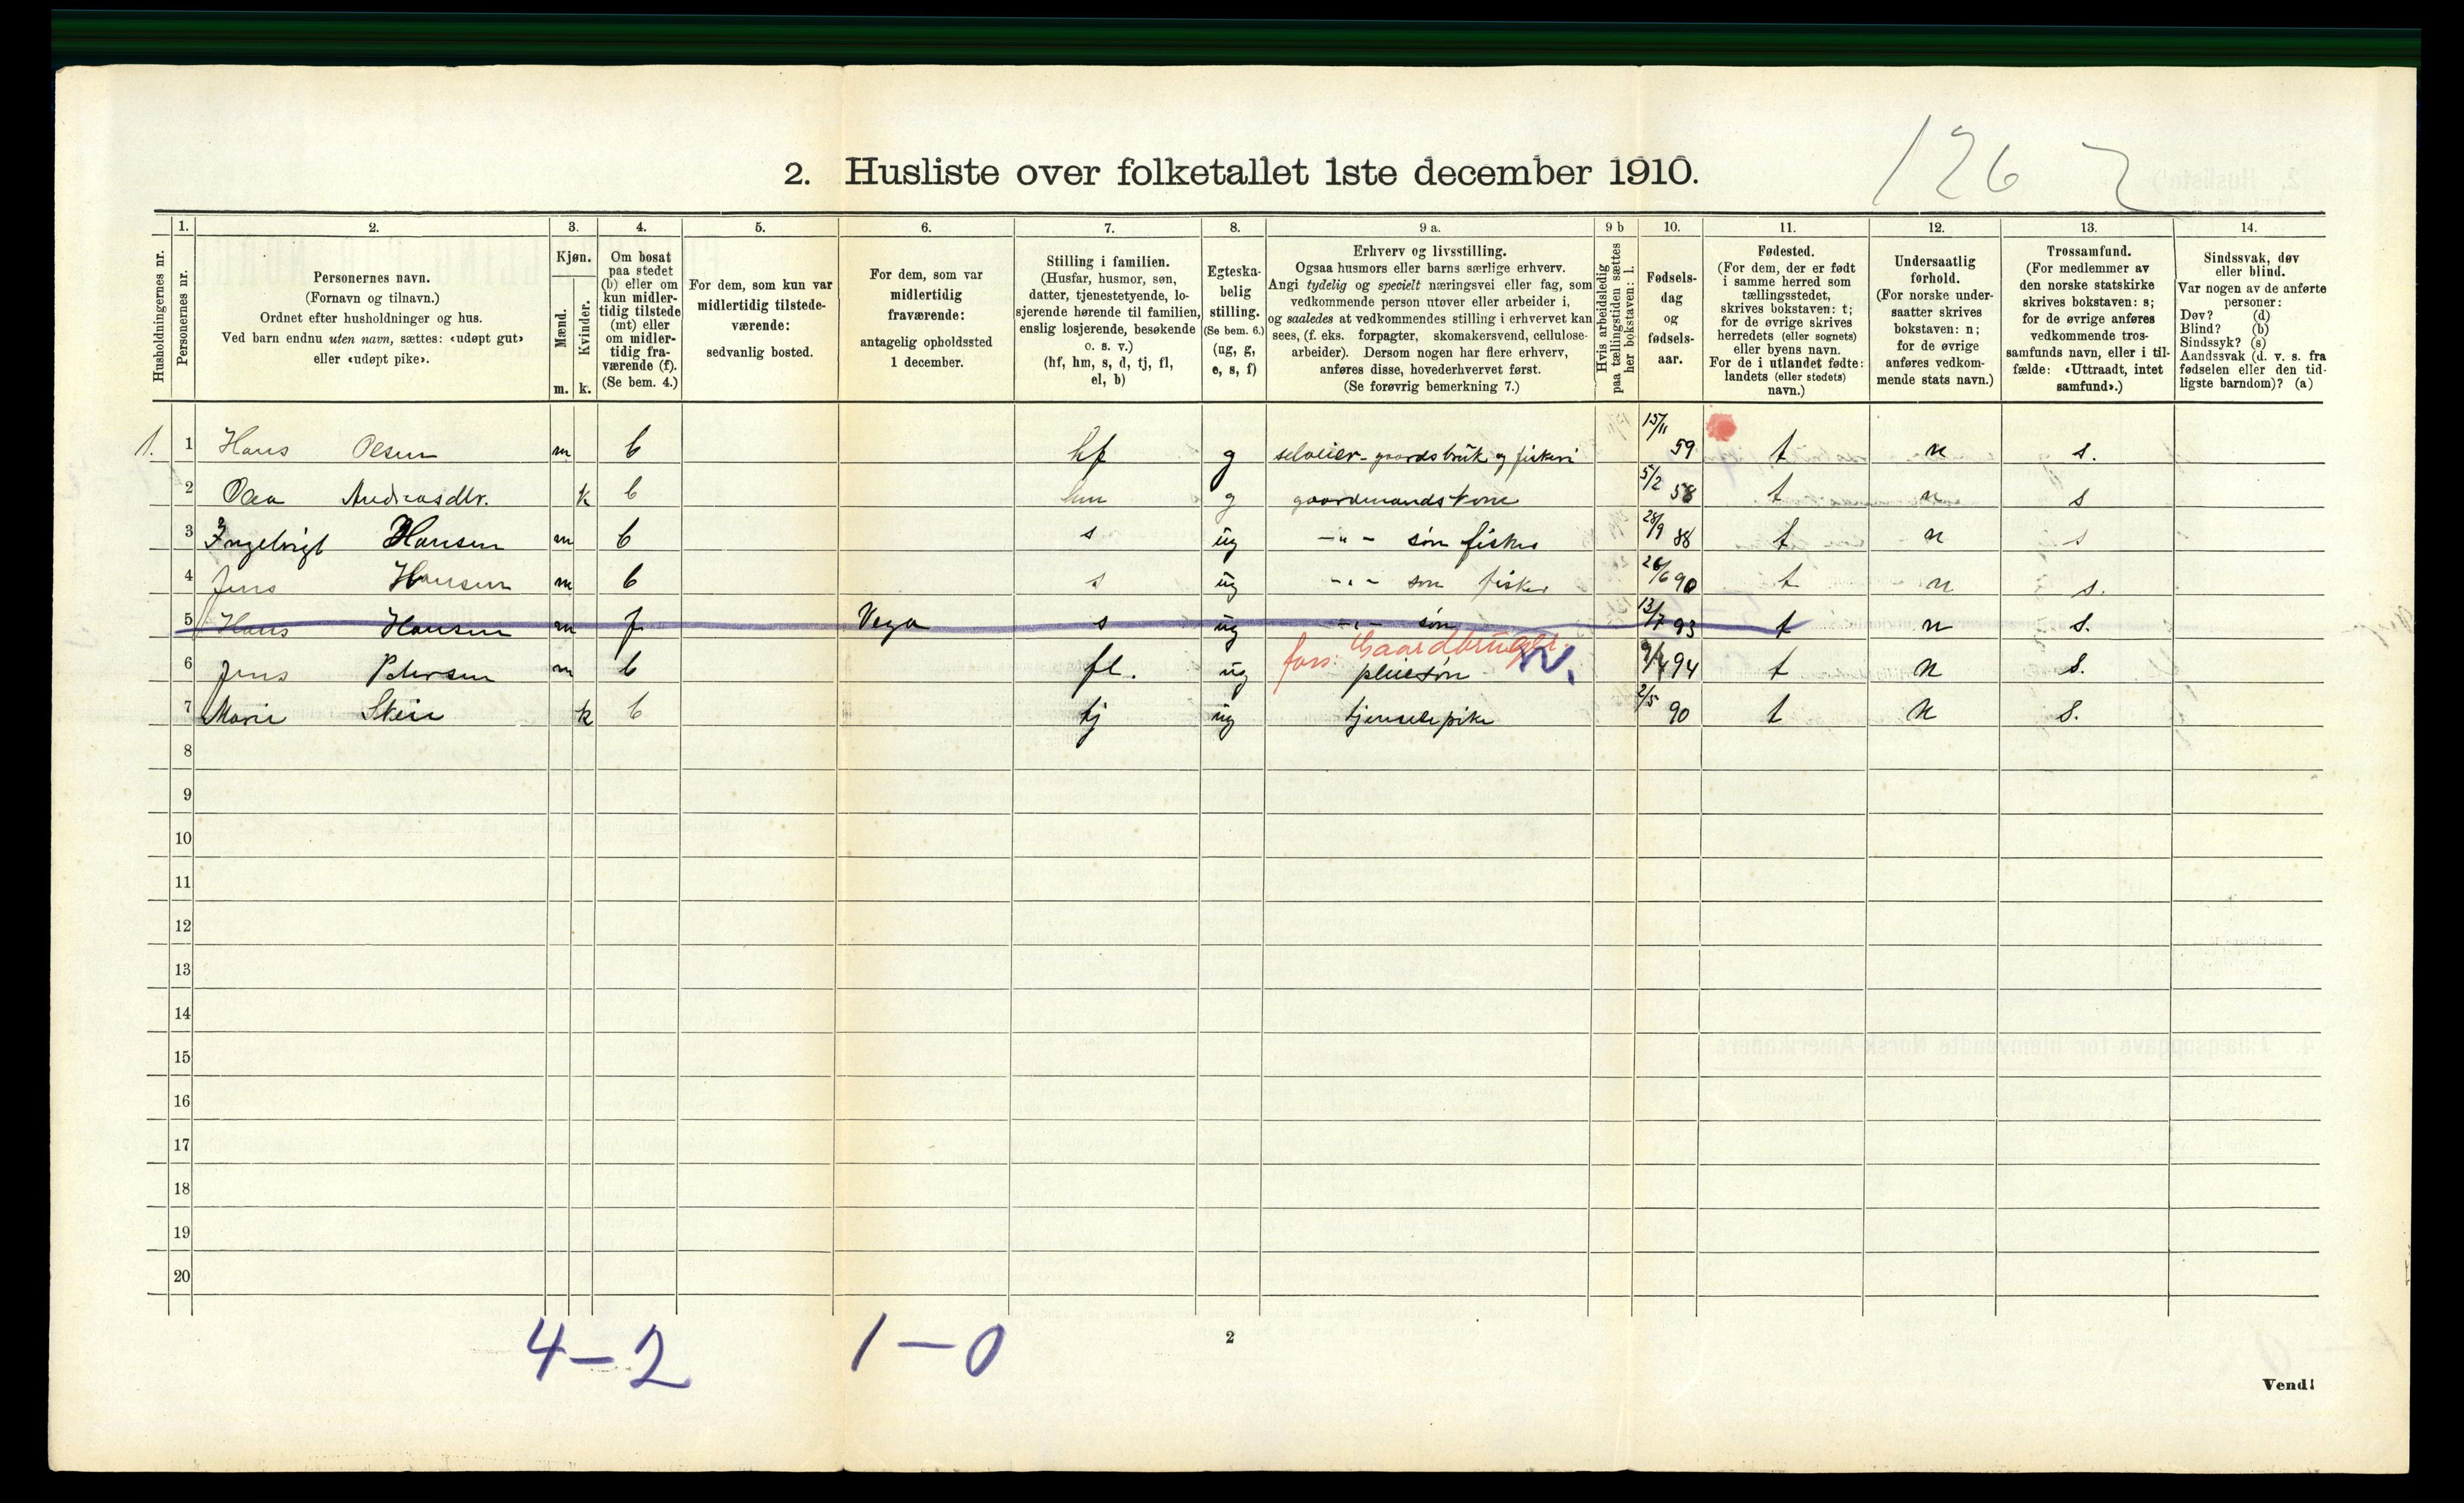 126 2
2. Husliste over folketallet 1ste december 1910.
Husholdningernes nr.
1. Personernes nr.
2. Personernes navn.
(Fornavn og tilnavn.)
Ordnet efter husholdninger og hus.
Ved barn endnu uten navn, sættes: «udøpt gut»
eller «udøpt pike».
3. Kjøn.
Mænd. Kvinder.
m. k.
4. Om bosat
paa stedet
(b) eller om
kun midler-
tidig tilstede
(mt) eller
om midler-
tidig fra-
værende (f).
(Se bem. 4.)
5. For dem, som kun var
midlertidig tilstede-
værende:
sedvanlig bosted.
6. For dem, som var
midlertidig
fraværende:
antagelig opholdssted
1 december.
7. Stilling i familien.
(Husfar, husmor, søn,
datter, tjenestetyende, lo-
sjerende hørende til familien,
enslig losjerende, besøkende
o. s. v.)
(hf, hm, s, d, tj, fl,
el, b)
8. Egteska-
belig
stilling.
(Se bem. 6.)
(ug, g,
e, s, f)
9 a. Erhverv og livsstilling.
Ogsaa husmors eller barns særlige erhverv.
Angi tydelig og specielt næringsvei eller fag, som
vedkommende person utøver eller arbeider i,
og saaledes at vedkommendes stilling i erhvervet kan
sees, (f. eks. forpagter, skomakersvend, cellulose-
arbeider). Dersom nogen har flere erhverv,
anføres disse, hovederhvervet først.
(Se forøvrig bemerkning 7.)
9 b Hvis arbeidsledig
paa tællingstiden sættes
her bokstaven: l.
10. Fødsels-
dag
og
fødsels-
aar.
11. Fødested.
(For dem, der er født
i samme herred som
tællingsstedet,
skrives bokstaven: t;
for de øvrige skrives
herredets (eller sognets)
eller byens navn.
For de i utlandet fødte:
landets (eller stedets)
navn.)
12. Undersaatlig
forhold.
(For norske under-
saatter skrives
bokstaven: n;
for de øvrige
anføres vedkom-
mende stats navn.)
13. Trossamfund.
(For medlemmer av
den norske statskirke
skrives bokstaven: s;
for de øvrige anføres
vedkommende tros-
samfunds navn, eller i til-
fælde: «Uttraadt, intet
samfund».)
14. Sindssvak, døv
eller blind.
Var nogen av de anførte
personer:
Døv? (d)
Blind? (b)
Sindssyk? (s)
Aandssvak (d. v. s. fra
fødselen eller den tid-
ligste barndom)? (a)
1. 1 Hans Olsen m b hf g selveier-gaardsbruk og fiskeri 15/11 59 t n s.
2 Olea Andreasdtr. k b hm g gaardmandskone 5/2 58 t n s
3 Ingebrigt Hansen m b s ug -"- søn fisker 28/9 88 t n s
4 Jens Hansen m b s ug -"- søn fisker 26/6 90 t n s.
5 Hans Hansen m f Vega s ug -"- søn 13/7 93 t n s.
fors: Gaardbruger. N.
6 Jens Petersen m b fl. ug pleiesøn 9/4 94 t n s.
7 Marie Skeie k b tj ug tjenestepike 2/5 90 t n s.
8
9
10
11
12
13
14
15
16
17
18
19
20
4-2 1-0
2
Vend!